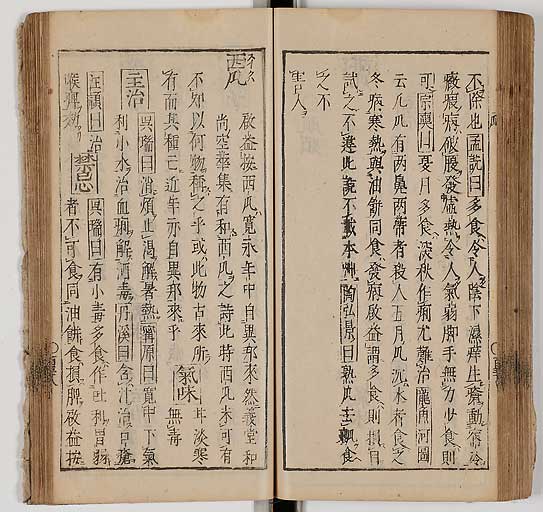 不除也孟詵曰多食令人陰下濕癢生瘡動宿冷
癥瘕病破腹發虛熱令人氣弱脚手無力少食則
可宗奭曰夏月多食深秋作痢尤難治龍魚河圖
云凡瓜有兩鼻兩蔕者殺人五月瓜沉水者食之
冬病寒熱與油餅同食發病啟益謂多食則損目
試之不違此說不載本艸陶弘景曰熟瓜去瓤食
之不
害人
西瓜
啟益按西瓜寛永年中自異邦來然義堂和
尚空華集有和西瓜之詩此時西瓜未可有
不知以何物稱之乎或此物古來所
有而其種亡近年亦自異邦來乎
氣味
甘淡寒
無毒
主治
吳瑞曰消煩止渴解暑熱寗原曰寛中下氣
利小水治血痢解酒毒丹溪曰含汁治口瘡
汪頴曰治
喉痺
禁忌
吳瑞曰有小毒多食作吐利胃弱
者不可食同油餅食損脾啟益按